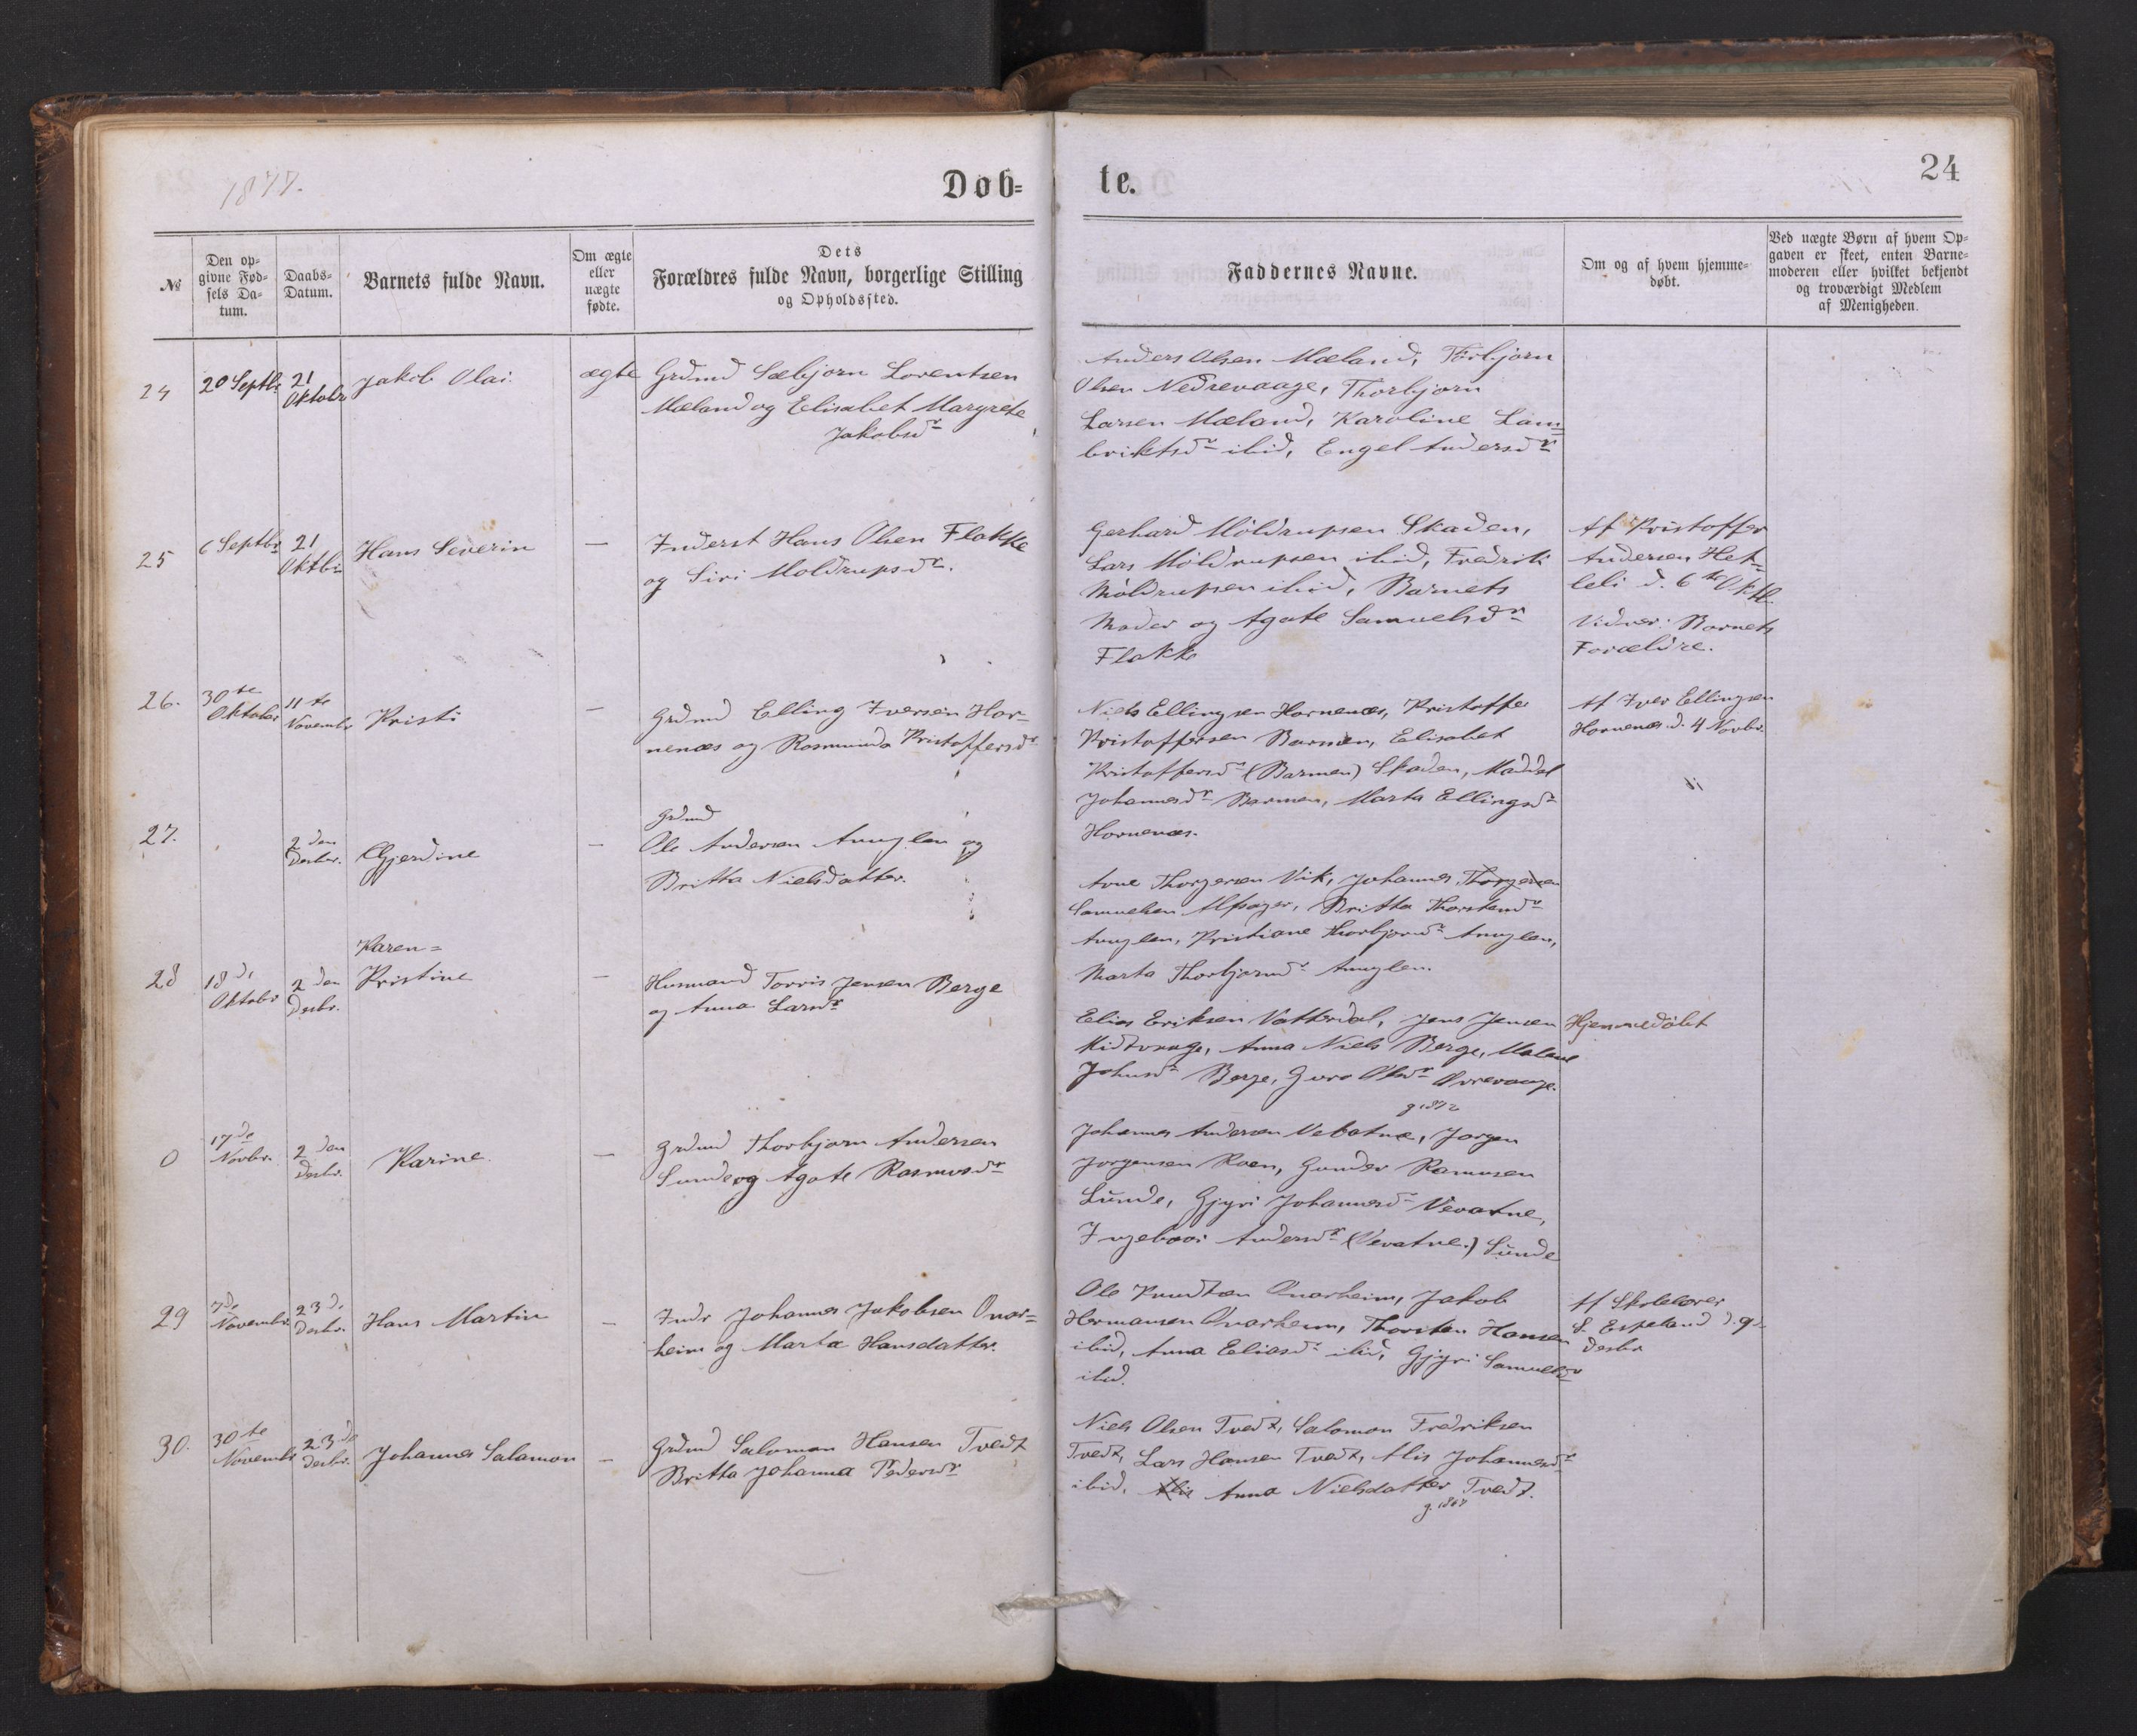 1877.
Døb=
te.
24
№
Den op=
givne Fød=
sels Da=
tum.
Daabs=
Datum.
Barnets fulde Navn.
Om ægte
eller
uægte
fødte.
Dets
Forældres fulde Navn, borgerlige Stilling
og Opholdssted.
Faddernes Navne.
Om og af hvem hjemme=
døbt.
Ved uægte Børn af hvem Op=
gaven er skeet, enten Barne=
moderen eller hvilket bekjendt
og troværdigt Medlem
af Menigheden.
24
20 Septbr
21
Oktobr
Jakob Olai.
ægte
Grdmd Sæbjørn Lorentsen
Mæland og Elisabet Margrete
Jakobsdr
Anders Olsen Mæland, Torbjørn
Olsen Nedrevaage, Thorbjørn
Larsen Mæland, Karoline Lam=
briktsdr ibid, Engel Andersdr
25
6 Septbr
21
Oktbr
Hans Severin
—
Inderst Hans Olsen Flakke
og Siri Moldrupsdr.
Gerhard Möldrupsen Skaden,
Lars Möldrupsen ibid, Fredrik
Möldrupsen ibid, Barnets
Moder og Agate Samuelsdr
Flakke
Af Kristoffer
Andersen Het=
leli d. 6te Oktb.
Vidner: Barnets
Forældre.
26.
30te
Oktober
11te
Novembr
Kristi
—
Grdmd Elling Iversen Hor=
nenæs og Rasmunda Kristoffersdr
Niels Ellingsen Hornenæs, Kristoffer
Kristoffersen Barmen, Elisabet
Kristoffersdr (Barmen) Skaden, Maddel
Johannesdr Barmen, Marta Ellingsdr
Hornenæs.
Af Iver Ellingsen
Hornenæs d. 4 Novbr.
27.
2den
Desbr.
Gjerdine
—
Grdmd
Ole Andersen Anuglen og
Britta Nielsdatter.
Arne Thorgersen Vik, Johannes Thorgersen
Samuelsen Alsager, Britta Thorstensdr
Anuglen, Kristiane Thorbjørnsdr Anuglen,
Marta Thorbjørnsdr Anuglen.
28
18de
Oktobr
2den
Desbr.
Karen=
Kristine
—
Husmand Torris Jensen Berge
og Anna Larsdr
Elias Eriksen Vatterdal, Jens Jensen
Midtvaage, Anna Niels Berge, Malene
Johnsdr Berge, Guro Olsdr Øvrevaage.
Hjemmedöbt
0
17de
Novbr.
2den
Desbr.
Karine
—
Grdmd Thorbjørn Andersen
Sunde og Agate Rasmusdr
Johannes Andersen Vebatne, Jørgen
Jørgensen Roen, Gunder Rasmusen
Sunde, Gjyri Johannesdr Vevatne,
Ingeborg Andersdr (Vevatne.) Sunde
29
7de
Novembr.
23de
Desbr.
Hans Martin
—
Indr Johannes Jakobsen Onar=
heim og Marta Hansdatter.
Ole Knudtsen Onarheim, Jakob
Hermansen Onarheim, Thorsten Hansen
ibid, Anna Eliasdr ibid, Gjyri Samuelsdr
ibid.
Af Skolelærer
S. Espeland d. 9de
Desbr
30.
30te
Novembr
23de
Desbr.
Johannes Salamon
—
Grdmd Salomon Hansen Tvedt
Britta Johanna Pedersdr
Niels Olsen Tvedt, Salomon Fredriksen
Tvedt, Lars Hansen Tvedt, Alis Johannesdr
ibid, Alis Anna Nielsdatter Tvedt.